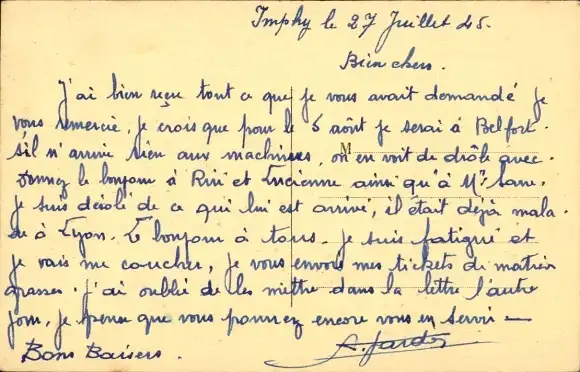 Imphy le 27 Juillet 45.
Bien chers.
J'ai bien reçu tout ce que je vous avait demandé je
vous remercie, je crois que pour le 5 août je serai à Belfort.
s'il n'arrive rien aux machines, on en voit de drôle avec.
M
Donnez le bonjour à Riri et Lucienne ainsi qu'à Mr
je suis désolé de ce qui lui est arrivé, il était déjà mala-
de à Lyon. Le bonjour à tous. Je suis fatigué et
je vais me coucher, je vous envois mes tickets de matière
grasses. j'ai oublié de les mettre dans la lettre l'autre
jour, je pense que vous pourrez encore vous en servir
Bons Baisers.